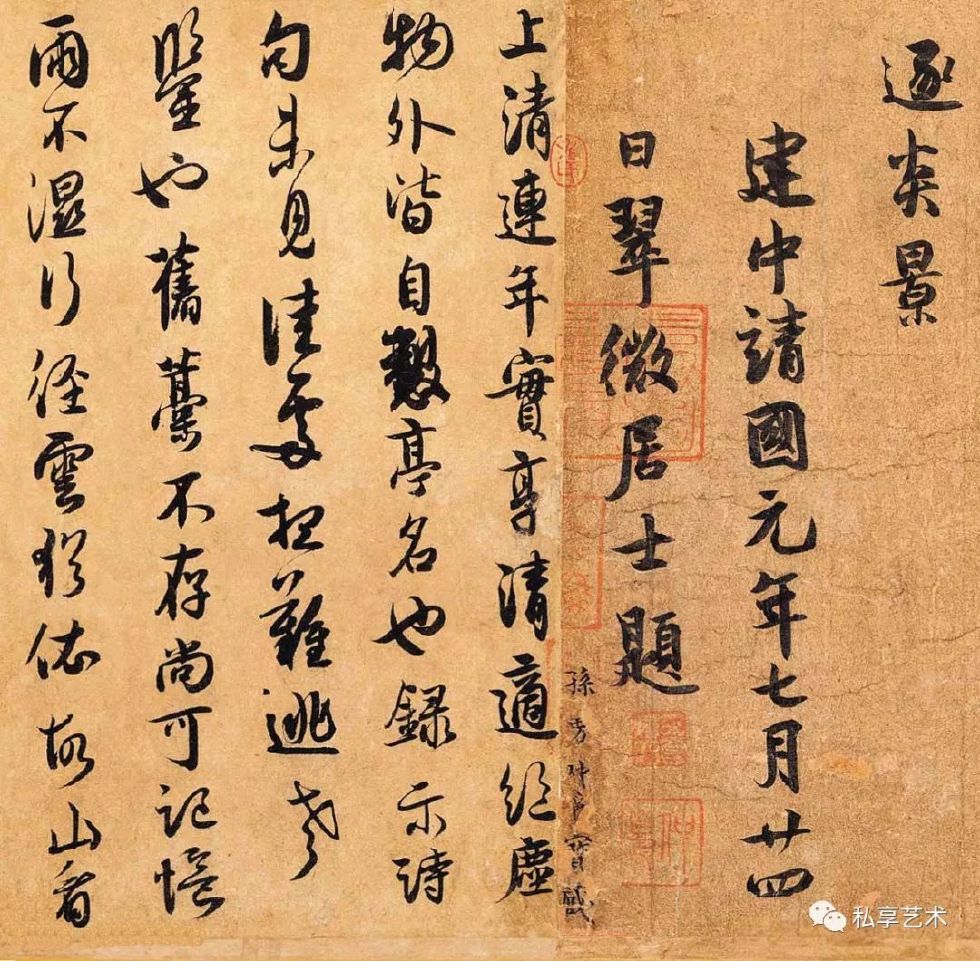 逐炎景
建中靖國元年七月廿四
日翠微居士題
上清連年實享清適絕塵
物外皆自製亭名也錄示詩
句未見佳處難逃老
鑒也舊藁不存尚可記憶
雨不濕行徑雲猶依故山看
寶藏
私享艺术